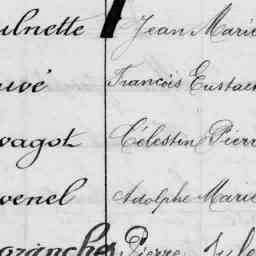 ulnette Jean Marie
uvé François Eustach
vagot Célestin Pierr
venel Adolphe Marie
Pierre Jule